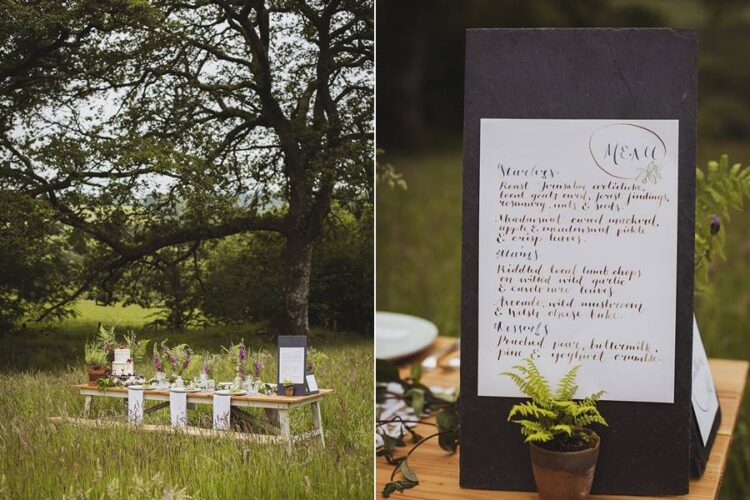 MENU
Starters
Roast Jerusalem artichoke,
local goats curd, forest findings,
rosemary, nuts & seeds.
Meadowsweet cured mackerel,
apple & meadowsweet pickle
& crisp leaves.
Mains
Kiddled local lamb chops
on wilted wild garlic
& leaves.
Avocado, wild mushroom
& Welsh cheese bake.
Desserts
Poached pear, buttermilk,
pine & yoghurt crumble.